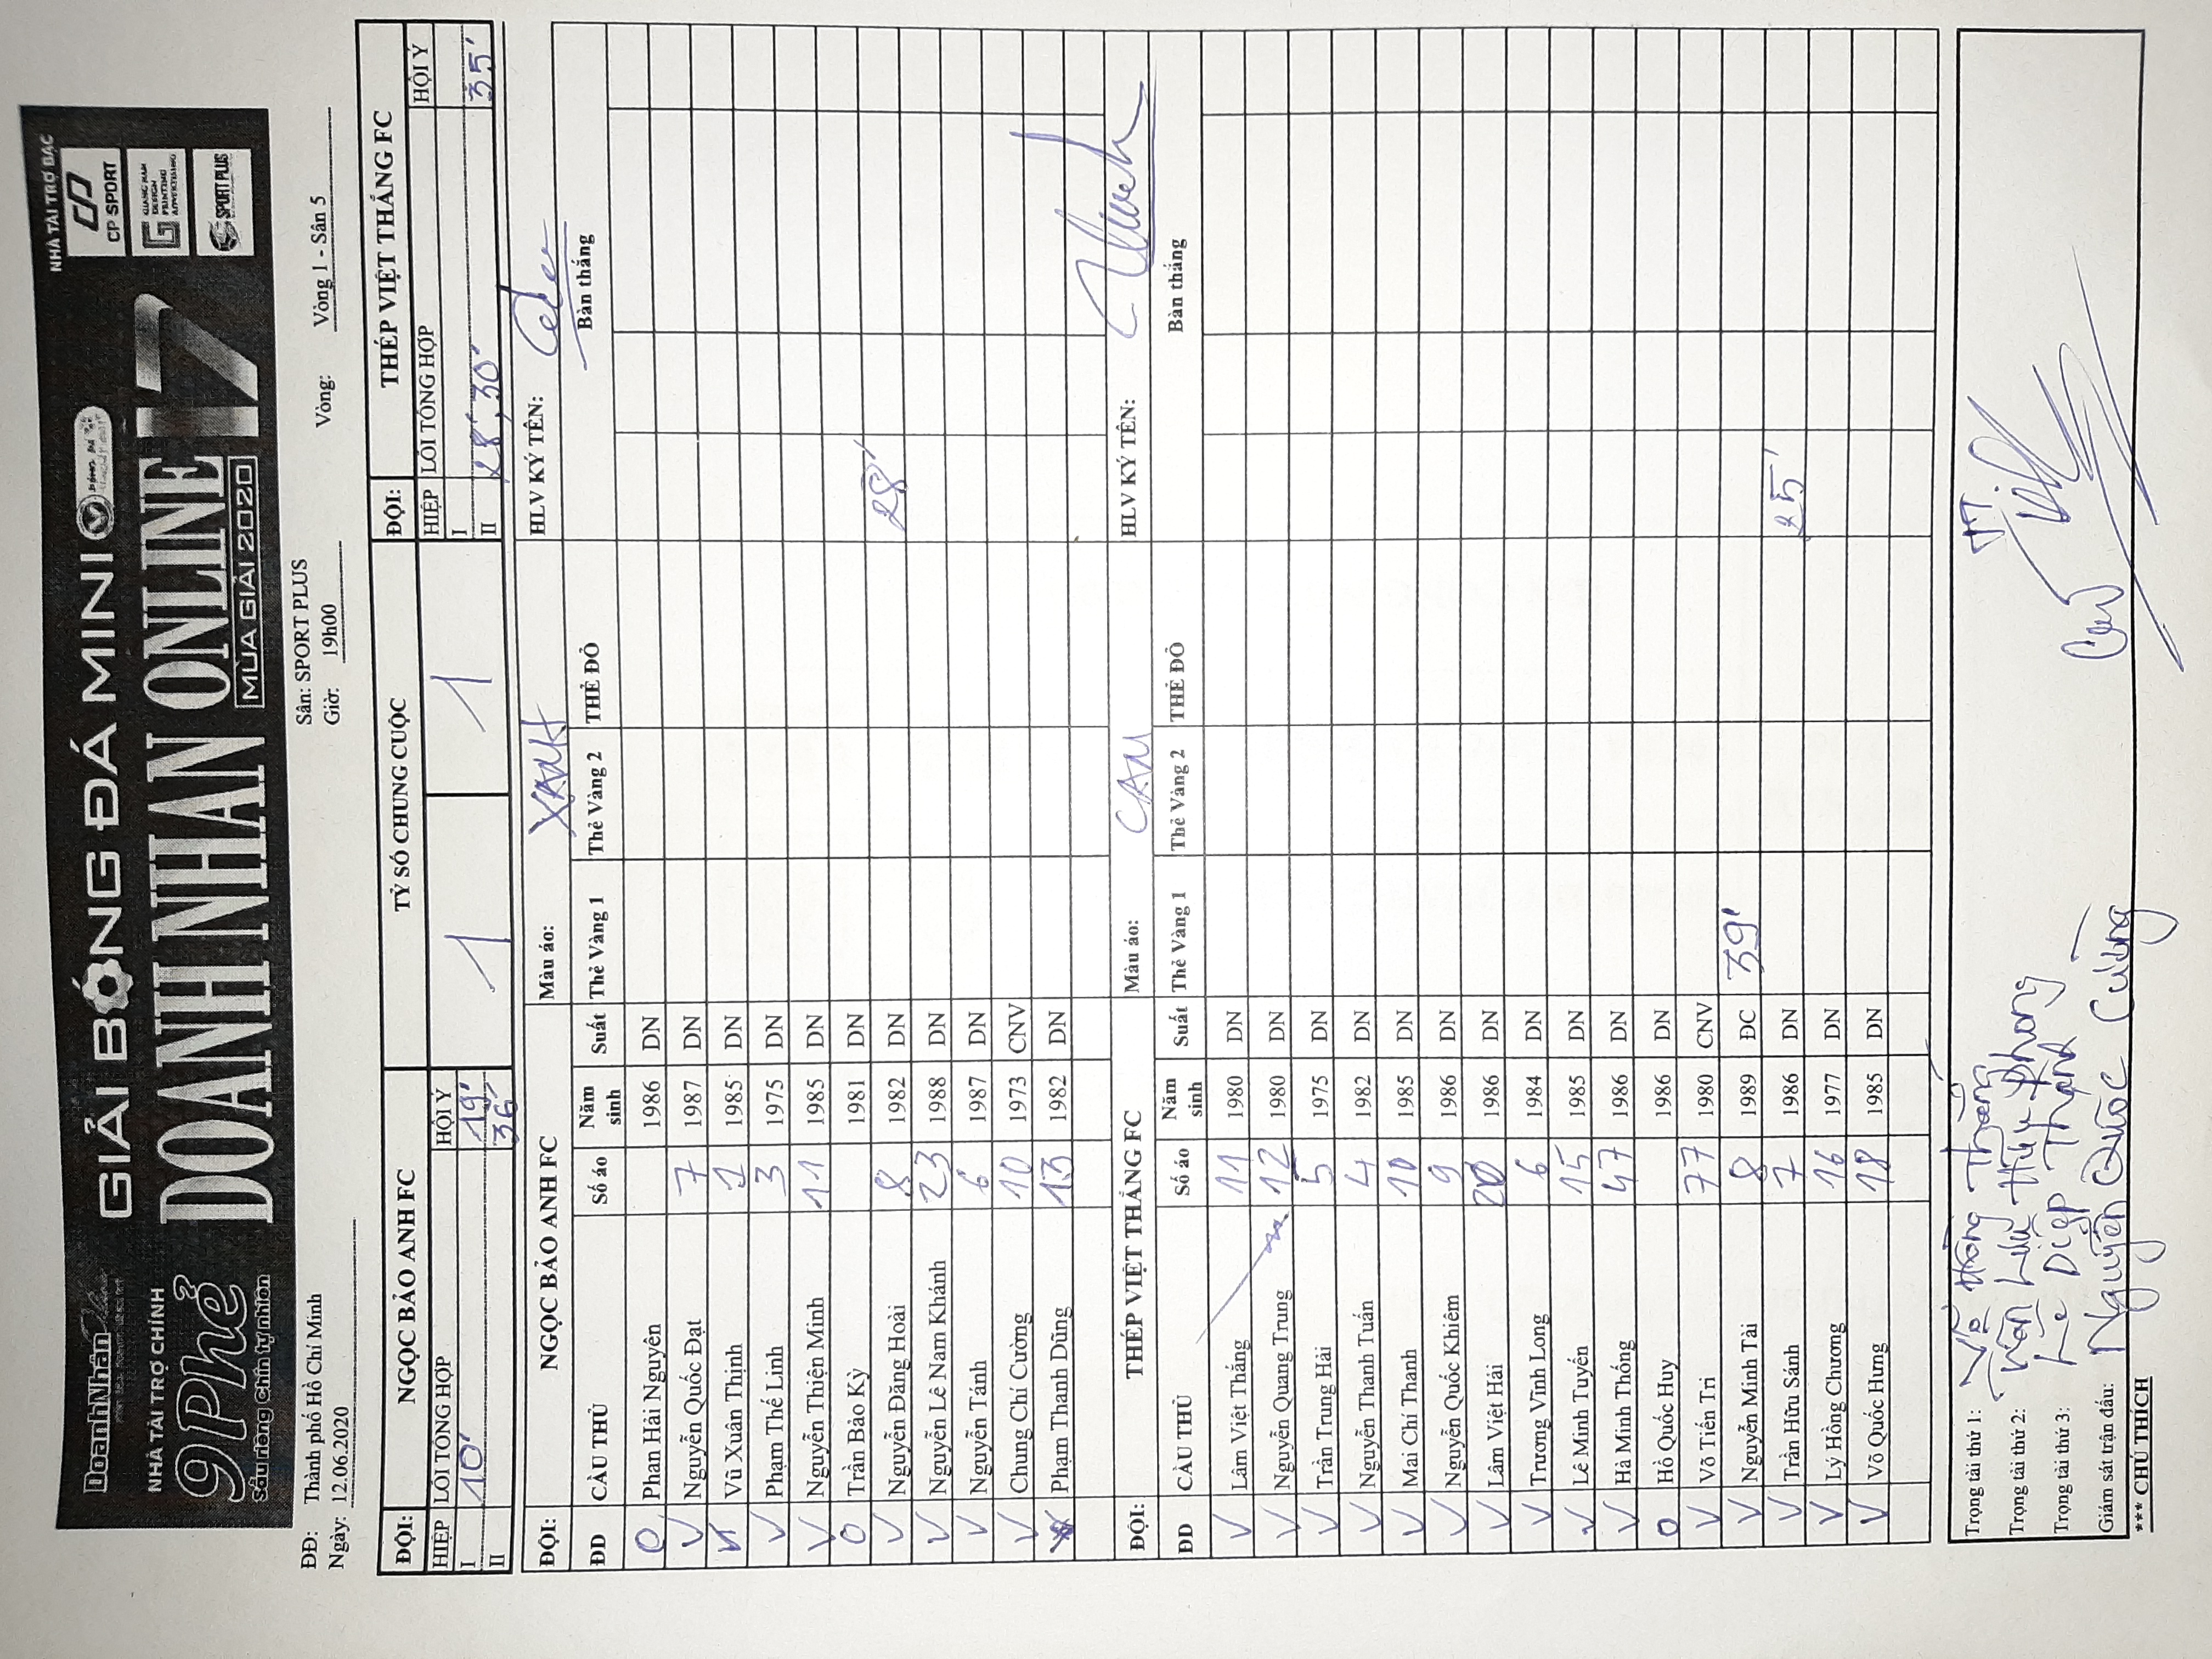 DoanhNhân
NHÀ TÀI TRỢ CHÍNH
9Phẻ
Sầu riêng chín tự nhiên
GIẢI BÓNG ĐÁ MINI
DOANH NHAN ONLINE 17
MÙA GIẢI 2020
NHÀ TÀI TRỢ BẠC
CP SPORT
QUANG NAM DESIGN PRINTING ADVERTISING
SPORT PLUS
ĐĐ: Thành phố Hồ Chí Minh Sân: SPORT PLUS
Ngày: 12.06.2020 Giờ: 19h00 Vòng: Vòng 1 - Sân 5
ĐỘI: NGỌC BẢO ANH FC TỶ SỐ CHUNG CUỘC ĐỘI: THÉP VIỆT THẮNG FC
HIỆP LỖI TỔNG HỢP HỘI Ý 1 1 HIỆP LỖI TỔNG HỢP HỘI Ý
I 10' 19' I
II 36' II 28', 30' 35'
ĐỘI: NGỌC BẢO ANH FC Màu áo: XANH HLV KÝ TÊN:
ĐD CẦU THỦ Số áo Năm sinh Suất Thẻ Vàng 1 Thẻ Vàng 2 THẺ ĐỎ Bàn thắng
O Phan Hải Nguyên 1986 DN
V Nguyễn Quốc Đạt 7 1987 DN
V Vũ Xuân Thịnh 1 1985 DN
V Phạm Thế Linh 3 1975 DN
V Nguyễn Thiện Minh 11 1985 DN
O Trần Bảo Kỳ 1981 DN
V Nguyễn Đăng Hoài 8 1982 DN 28'
V Nguyễn Lê Nam Khánh 23 1988 DN
V Nguyễn Tánh 6 1987 DN
V Chung Chí Cường 10 1973 CNV
Phạm Thanh Dũng 13 1982 DN
ĐỘI: THÉP VIỆT THẮNG FC Màu áo: CAM HLV KÝ TÊN:
ĐD CẦU THỦ Số áo Năm sinh Suất Thẻ Vàng 1 Thẻ Vàng 2 THẺ ĐỎ Bàn thắng
V Lâm Việt Thắng 11 1980 DN
V Nguyễn Quang Trung 12 1980 DN
V Trần Trung Hải 5 1975 DN
V Nguyễn Thanh Tuấn 4 1982 DN
V Mai Chí Thanh 10 1985 DN
V Nguyễn Quốc Khiêm 9 1986 DN
V Lâm Việt Hải 20 1986 DN
V Trương Vĩnh Long 6 1984 DN
V Lê Minh Tuyến 15 1985 DN
V Hà Minh Thống 47 1986 DN
O Hồ Quốc Huy 1986 DN
V Võ Tiến Tri 77 1980 CNV
V Nguyễn Minh Tài 8 1989 ĐC 39'
V Trần Hữu Sánh 7 1986 DN 25'
V Lý Hồng Chương 16 1977 DN
V Võ Quốc Hưng 18 1985 DN
Trọng tài thứ 1: Võ Hồng Thắng
Trọng tài thứ 2: Lưu Hữu Phong
Trọng tài thứ 3: Lê Diệp Thạnh
Giám sát trận đấu: Nguyễn Quốc Cường
*** CHÚ THÍCH